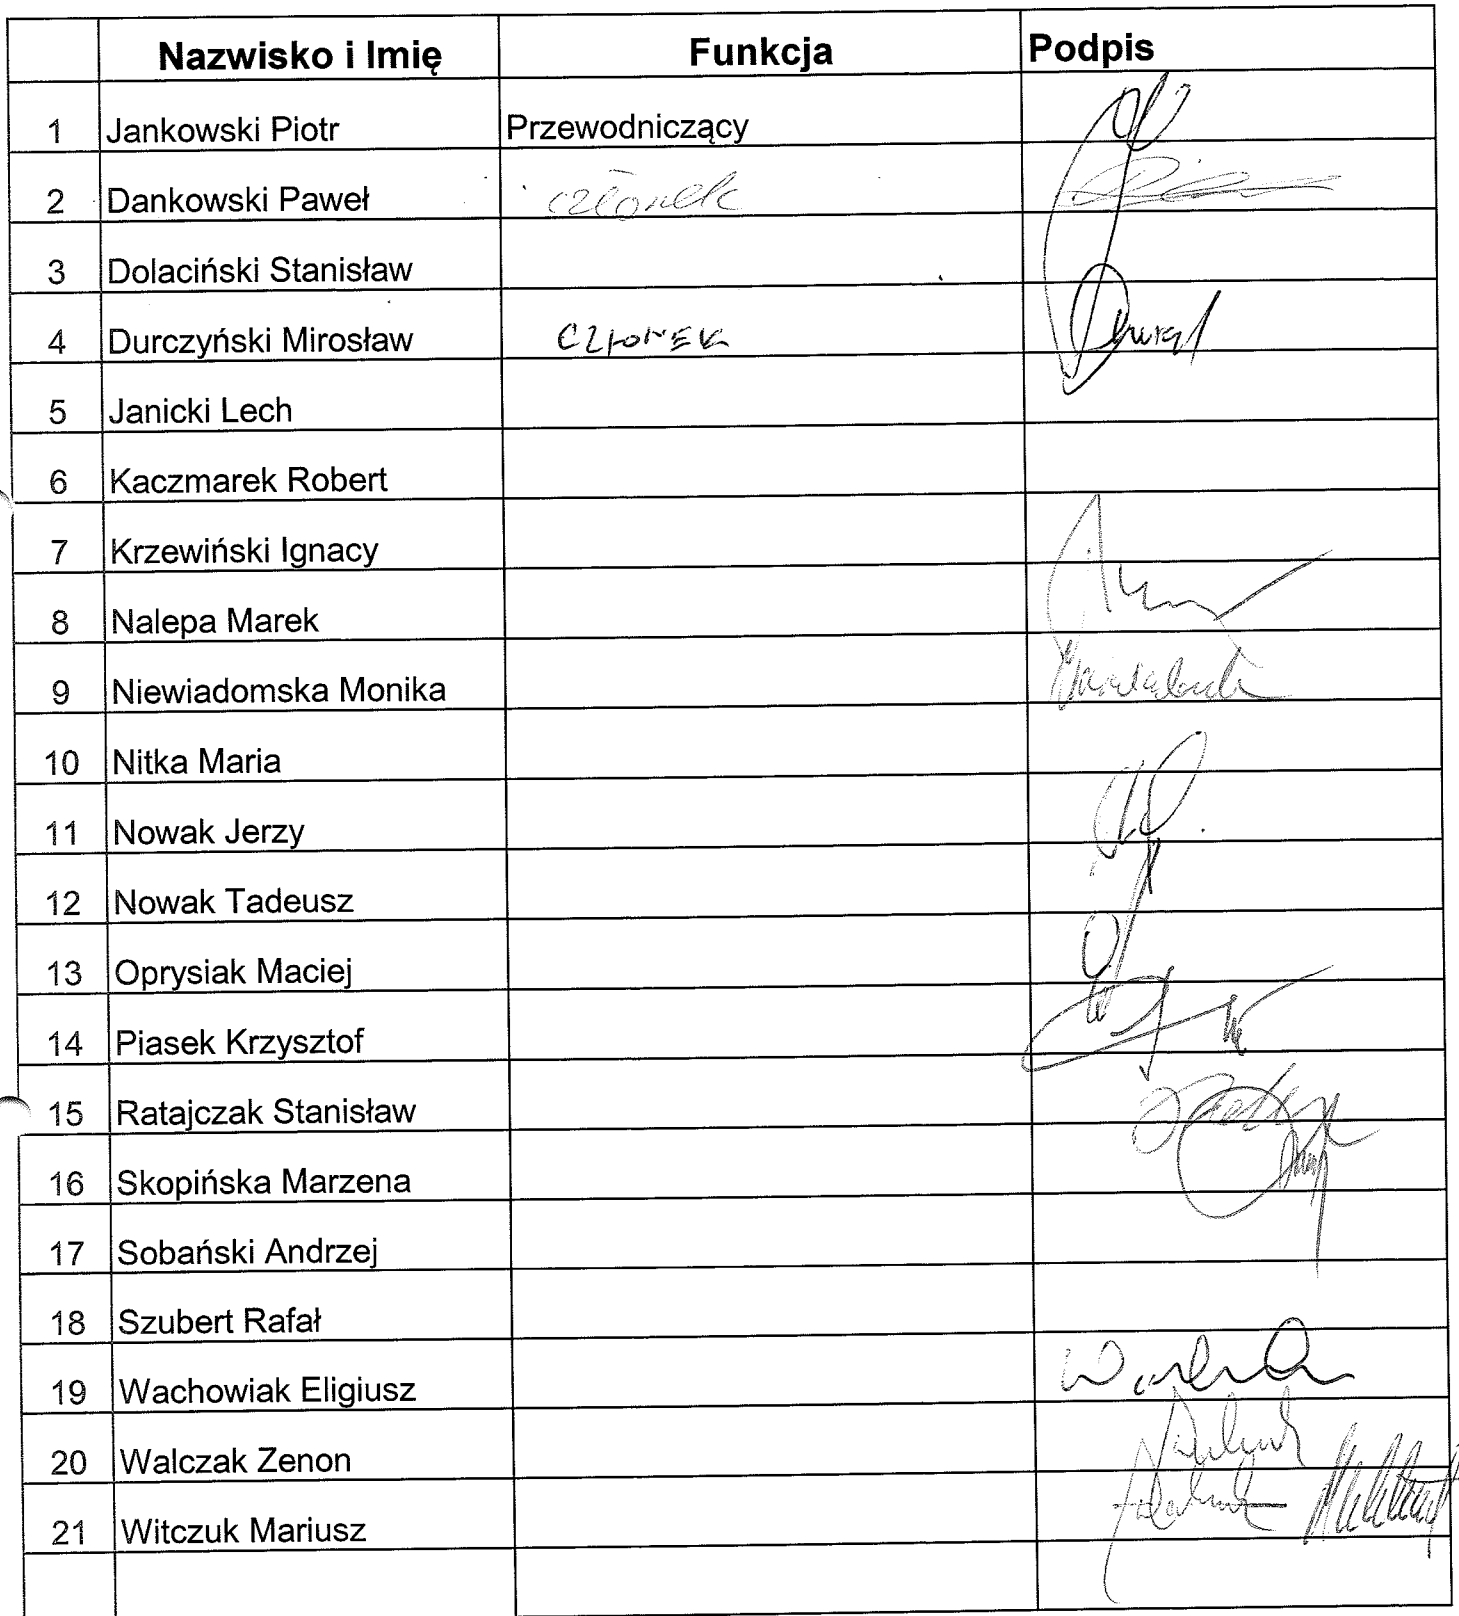 Nazwisko i Imię Funkcja Podpis
1 Jankowski Piotr Przewodniczący
2 Dankowski Paweł członek
3 Dolaciński Stanisław
4 Durczyński Mirosław CZŁONEK
5 Janicki Lech
6 Kaczmarek Robert
7 Krzewiński Ignacy
8 Nalepa Marek
9 Niewiadomska Monika
10 Nitka Maria
11 Nowak Jerzy
12 Nowak Tadeusz
13 Oprysiak Maciej
14 Piasek Krzysztof
15 Ratajczak Stanisław
16 Skopińska Marzena
17 Sobański Andrzej
18 Szubert Rafał
19 Wachowiak Eligiusz
20 Walczak Zenon
21 Witczuk Mariusz